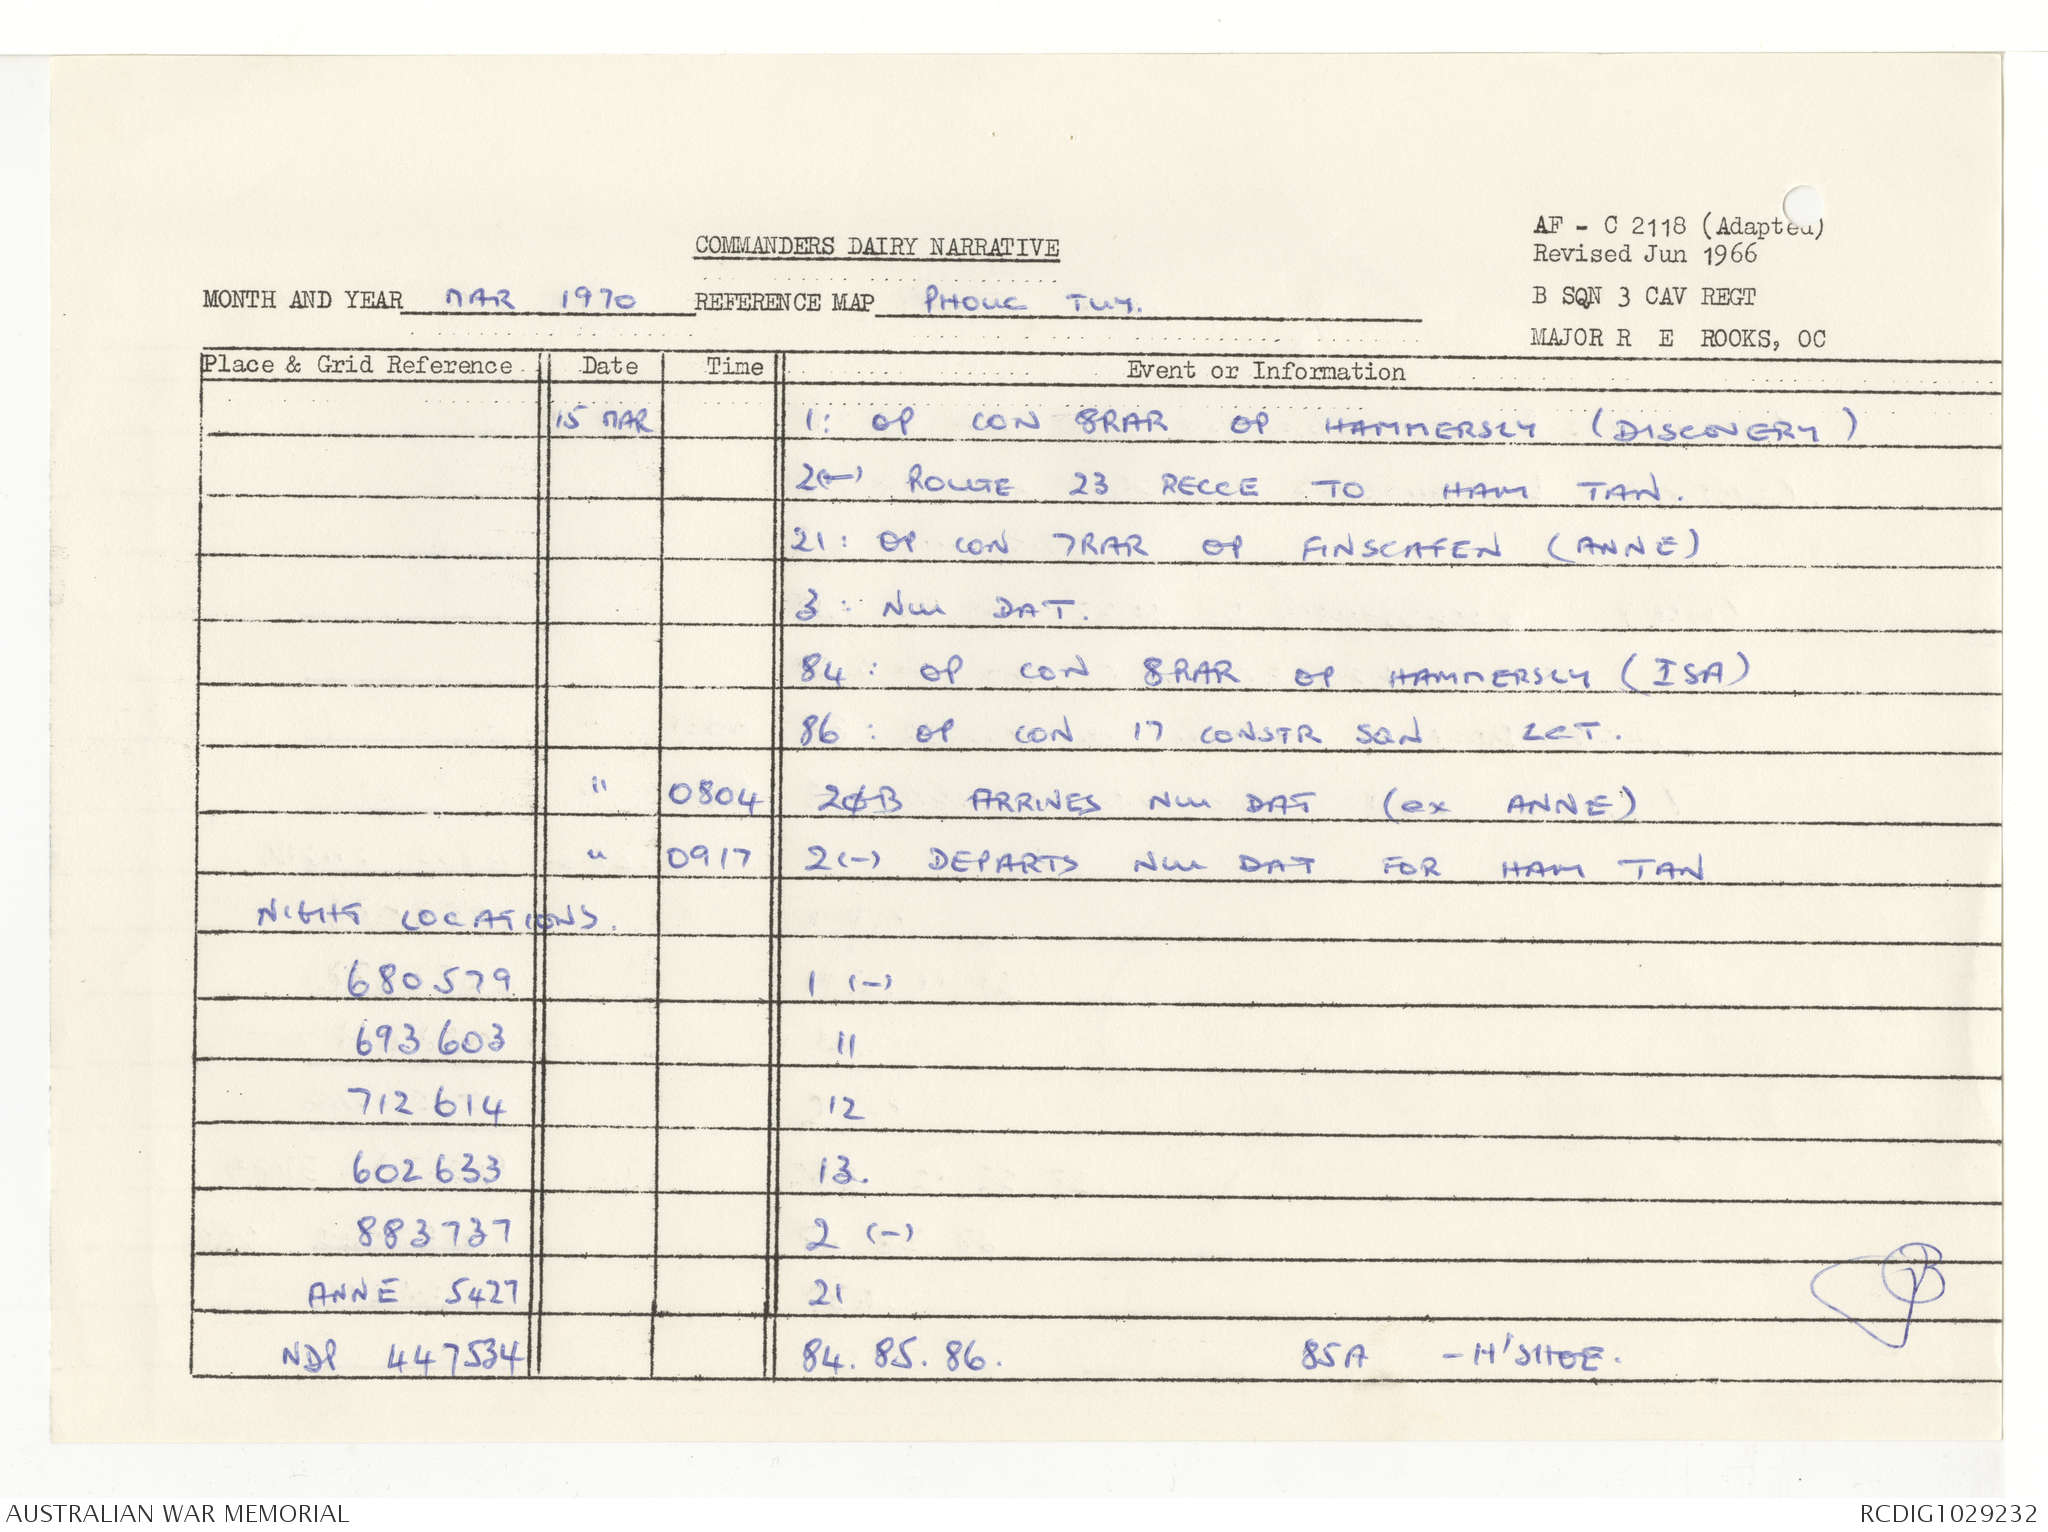 AF - C 2118 (Adapted)
COMMANDERS DAIRY NARRATIVE
Revised Jun 1966
MONTH AND YEAR MAR 1970 REFERENCE MAP PHOUC TUY.
B SQN 3 CAV REGT
MAJOR R E ROOKS, OC
Place & Grid Reference Date Time Event or Information
15 MAR 1: OP CON 8RAR OP HAMMERSLY (DISCOVERY)
2(-) ROUTE 23 RECCE TO HAM TAN.
21: OP CON 7RAR OP FINSCAFEN (ANNE)
3: NUI DAT.
84: OP CON 8RAR OP HAMMERSLY (ISA)
86: OP CON 17 CONSTR SQN LCT.
" 0804 2φB ARRIVES NUI DAT (ex ANNE)
" 0917 2(-) DEPARTS NUI DAT FOR HAM TAN
NIGHT LOCATIONS.
680579 1 (-)
693603 11
712614 12
602633 13.
883737 2 (-)
ANNE 5427 21
NDP 447534 84. 85. 86. 85A - H'SHOE.
AUSTRALIAN WAR MEMORIAL
RCDIG1029232